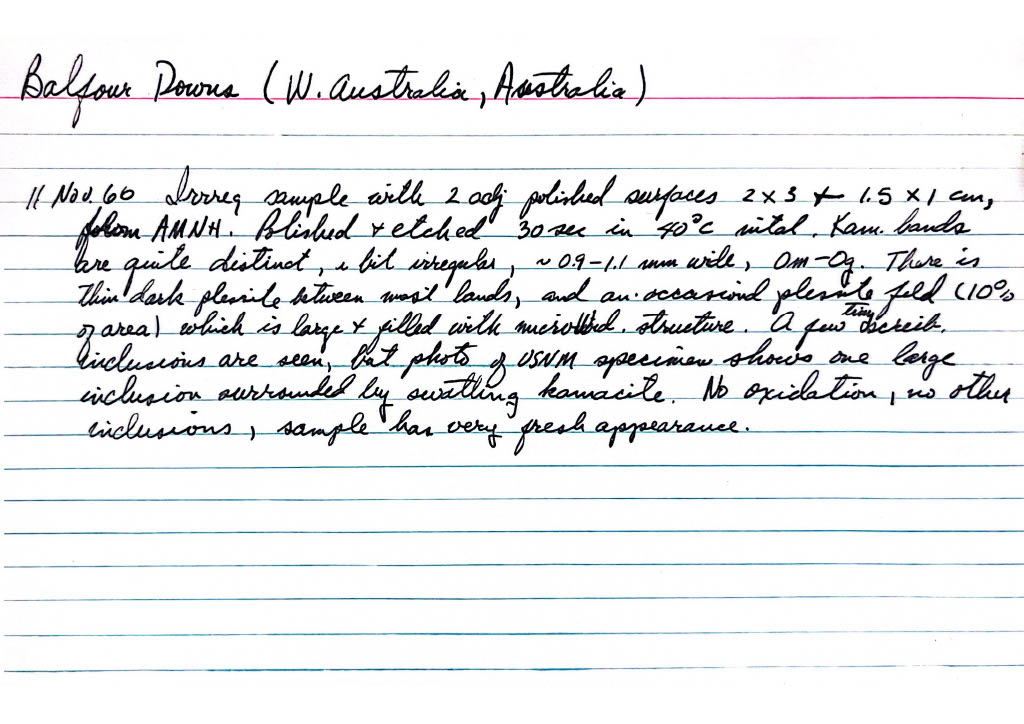 Balfour Downs (W. Australia, Australia)
11 Nov. 60 Irrreg sample with 2 adj polished surfaces 2 x 3 + 1.5 x 1 cm,
from AMNH. Polished + etched 30 sec in 40°C nital. Kam. bands
are quite distinct, a bit irregular, ~0.9-1.1 mm wide, Om-Og. There is
thin dark plessite between most bands, and an occasional plessite field (10%
of area) which is large + filled with microWid. structure. A few tiny schreib.
inclusions are seen, but photo of USNM specimen shows one large
inclusion surrounded by swathing kamacite. No oxidation, no other
inclusions, sample has very fresh appearance.